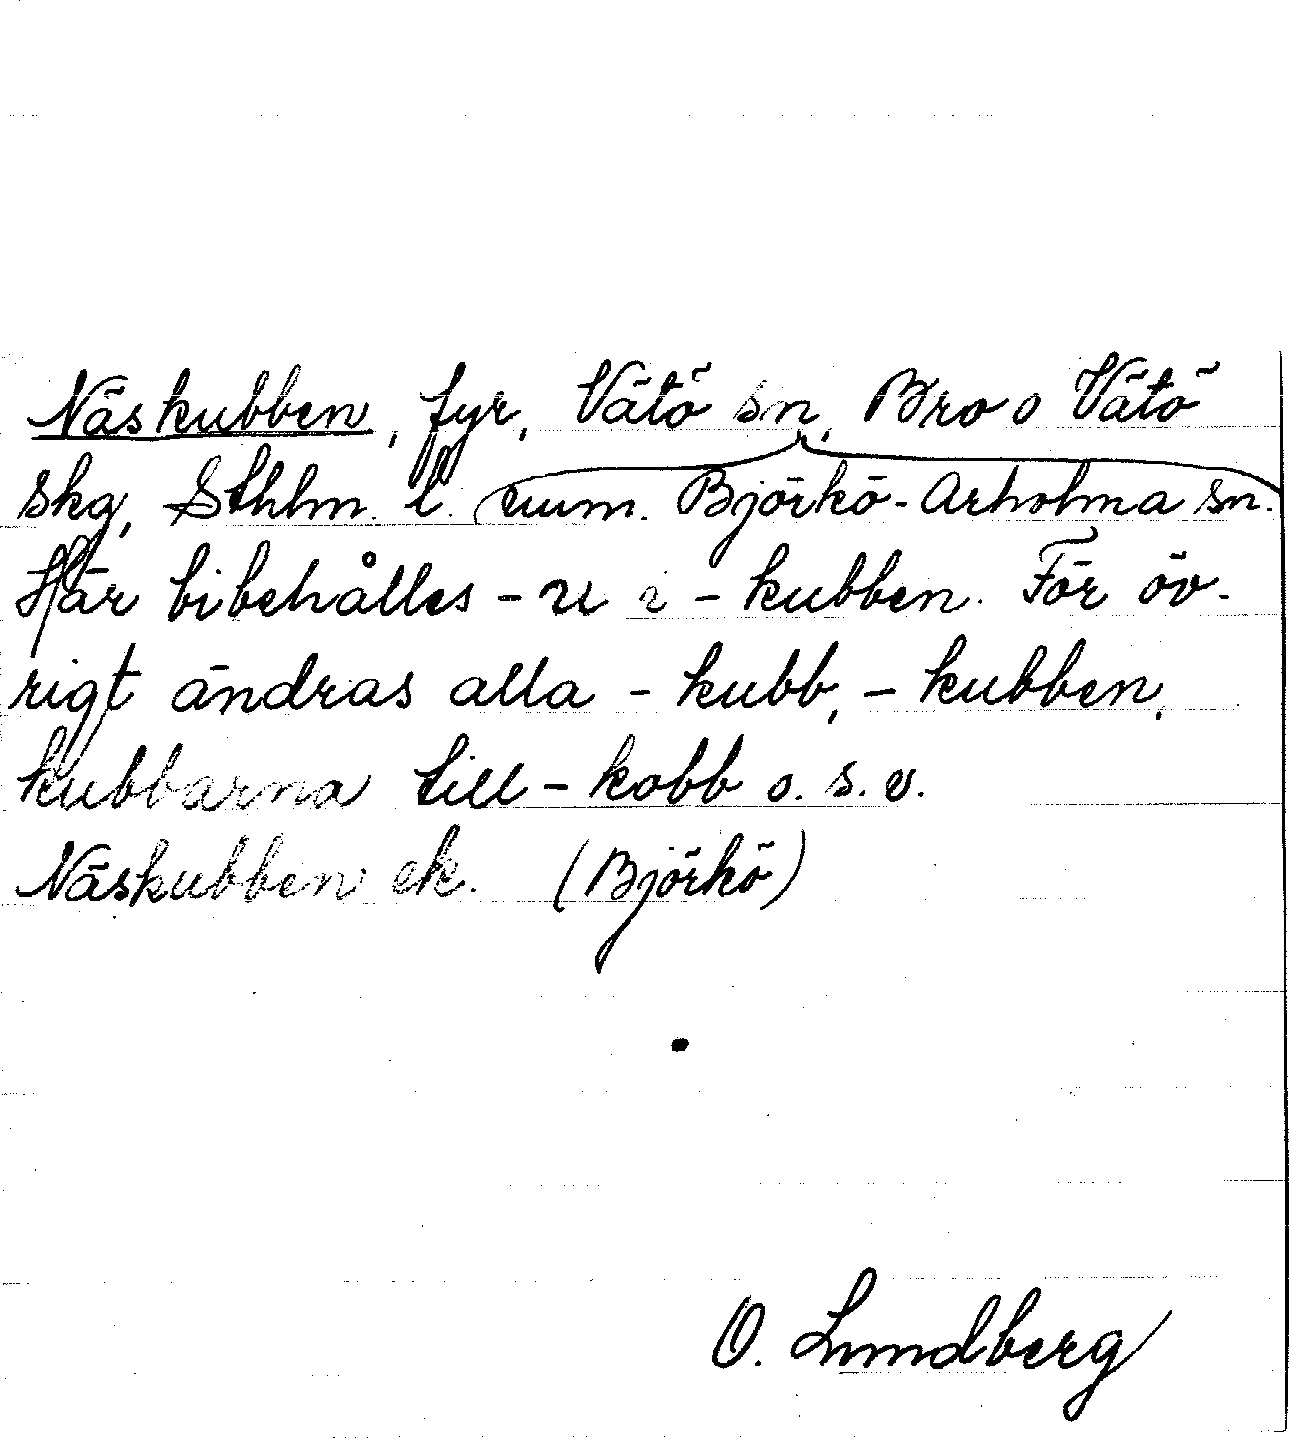 Näskubben, fyr, Vätö sn, Bro o Vätö
skg, Sthlm. l. (num. Björkö-Arholma sn.
Här bibehålles -u i -kubben. För öv-
rigt ändras alla -kubb, -kubben,
kubbarna till -kobb o. s. v.
Näskubben ek. (Björkö)
O. Lundberg